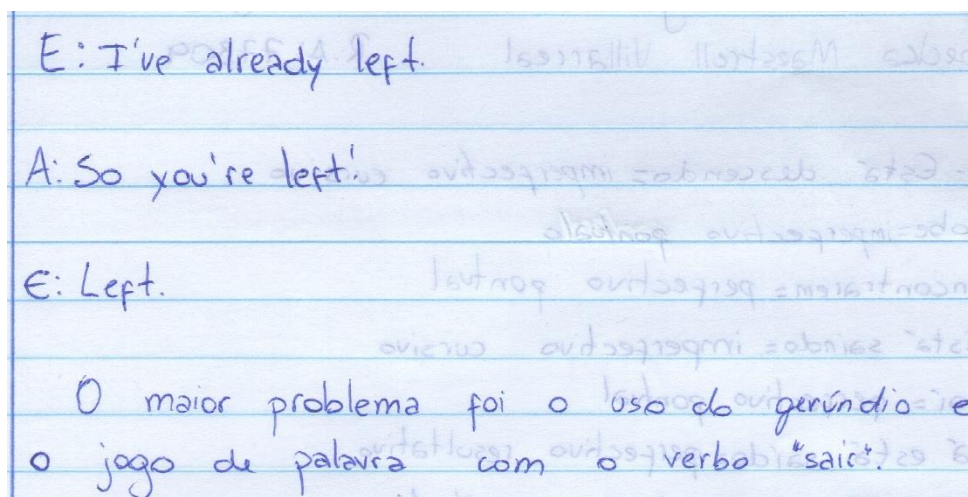 E: I've already left.
A: So you're left!
E: Left.
O maior problema foi o uso do gerúndio e
o jogo de palavra com o verbo "sair".